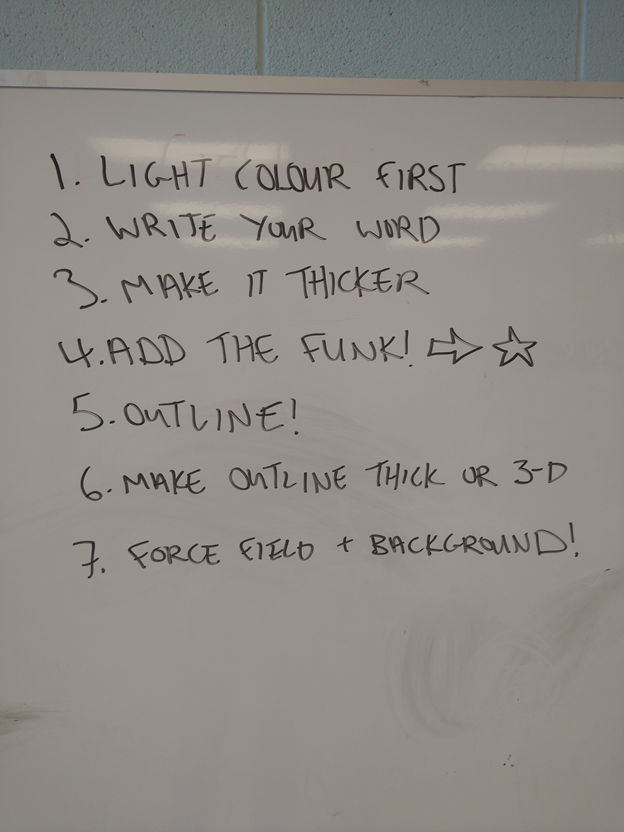 1. LIGHT COLOUR FIRST
2. WRITE YOUR WORD
3. MAKE IT THICKER
4. ADD THE FUNK! ⇨ ☆
5. OUTLINE!
6. MAKE OUTLINE THICK OR 3-D
7. FORCE FIELD + BACKGROUND!